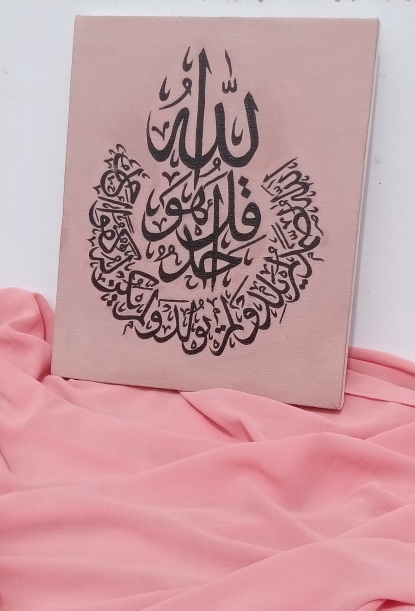 قل هو
الله
احد
الله الصمد لم يلد ولم يولد ولم يكن له كفوا احد